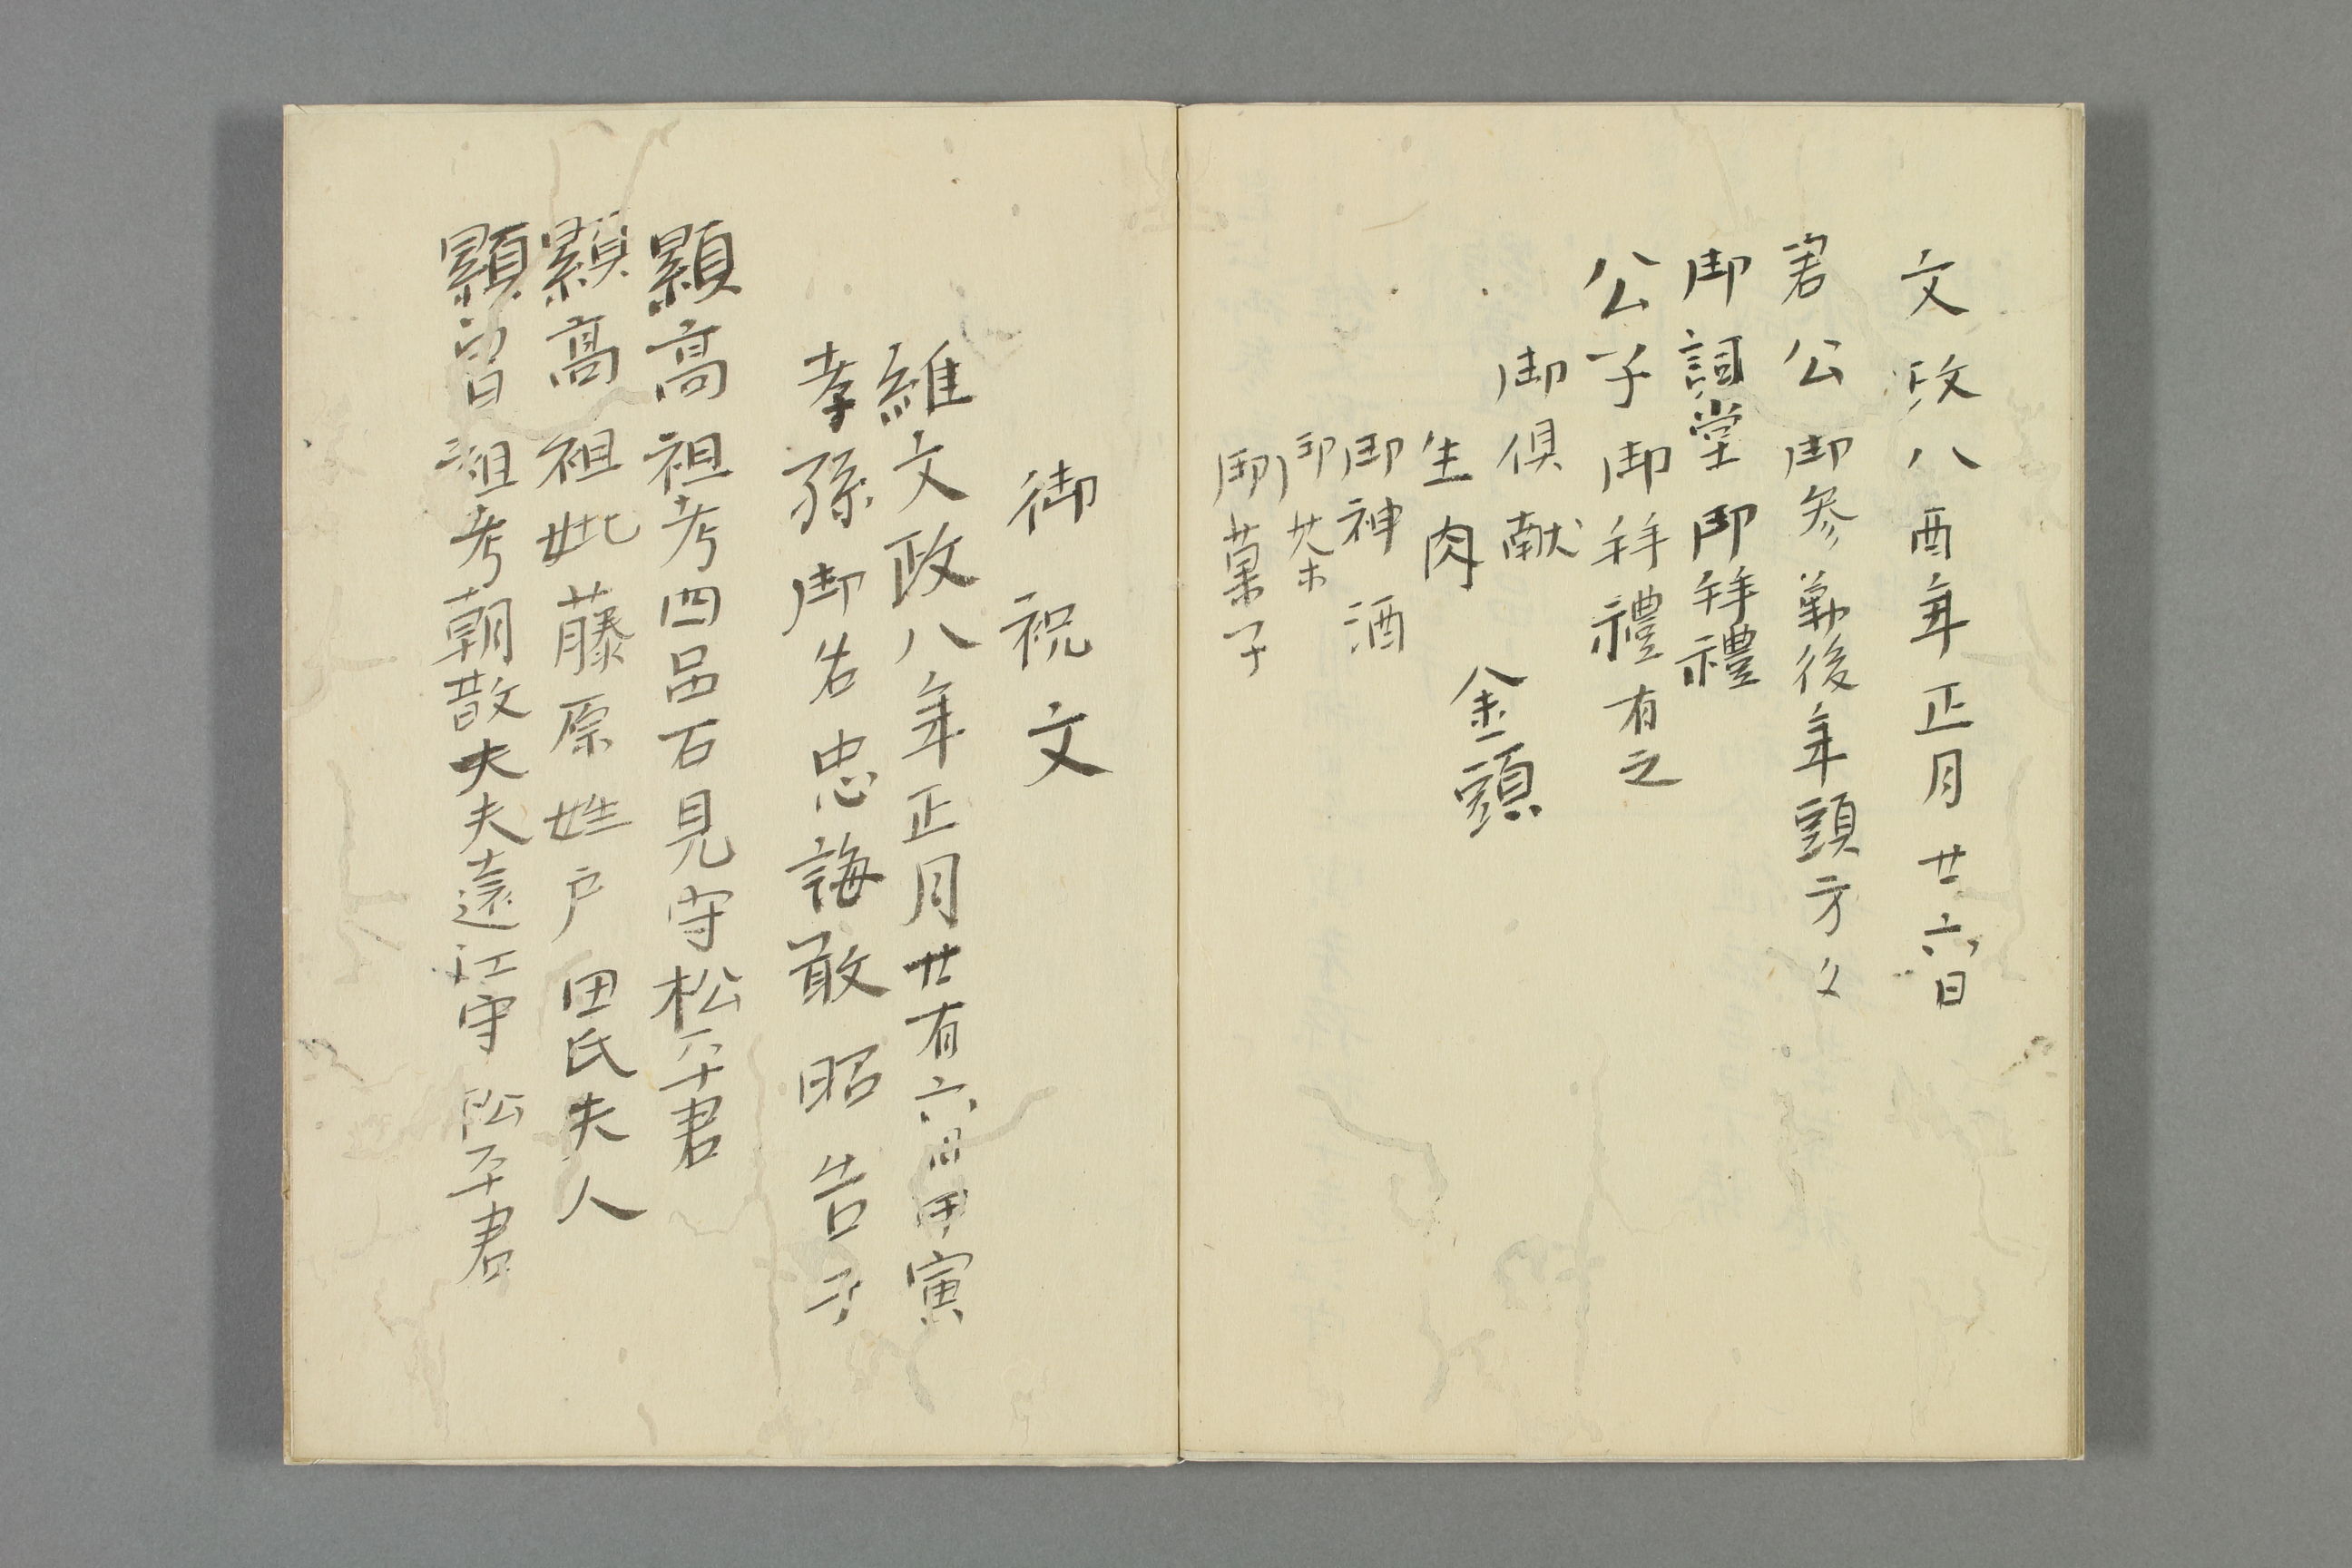 文政八酉年正月廿六日
君公御参勤後年頭方々
御詞堂御拝禮
公子御拝禮有之
御俱献
生肉 金頭
御神酒
御茶
御菓子
御祝文
維文政八年正月廿有六日甲寅
孝孫御名忠誨敢昭告于
顯高祖考四品石見守松平君
顯高祖妣藤原姓戸田氏夫人
顯曾祖考朝散大夫遠江守松平君